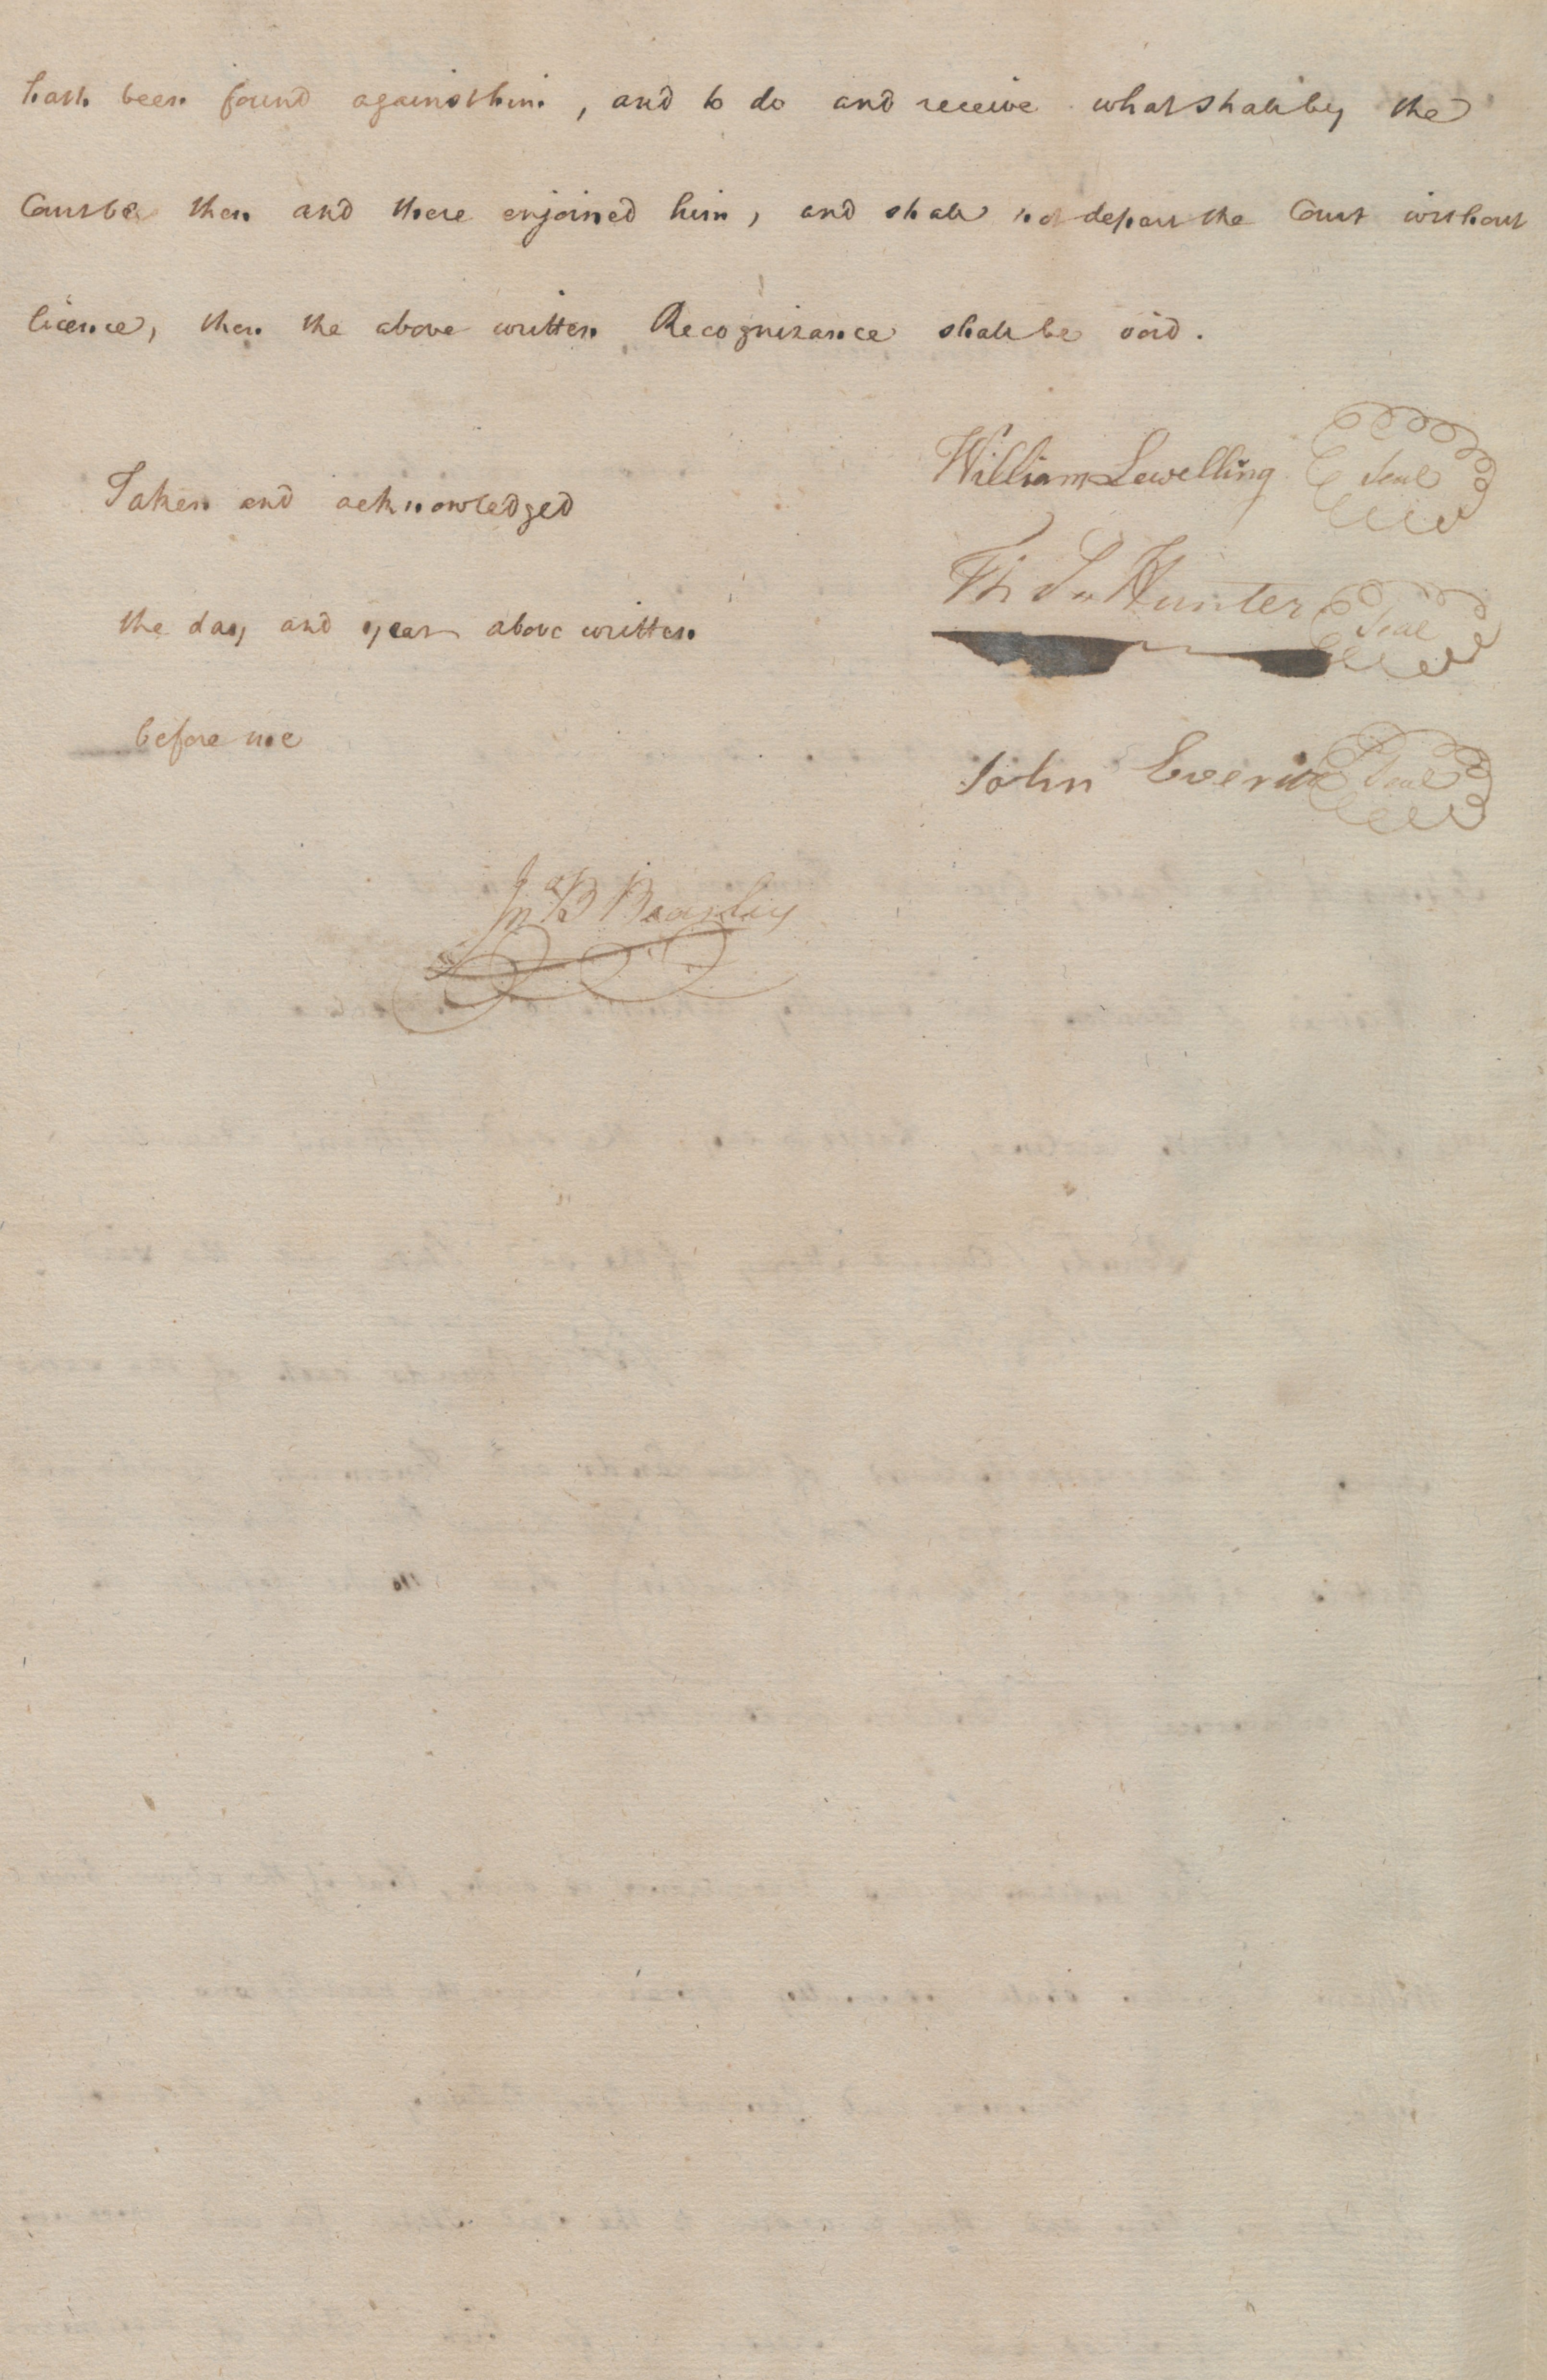 hath been found against him, and to do and receive what shall by the
Court be then and there enjoined him, and shall not depart the Court without
licence, then the above written Recognizance shall be void.
William Lewelling Seal
Taken and acknowledged
Hunter Seal
the day and year above written
before me
John Everitt Seal